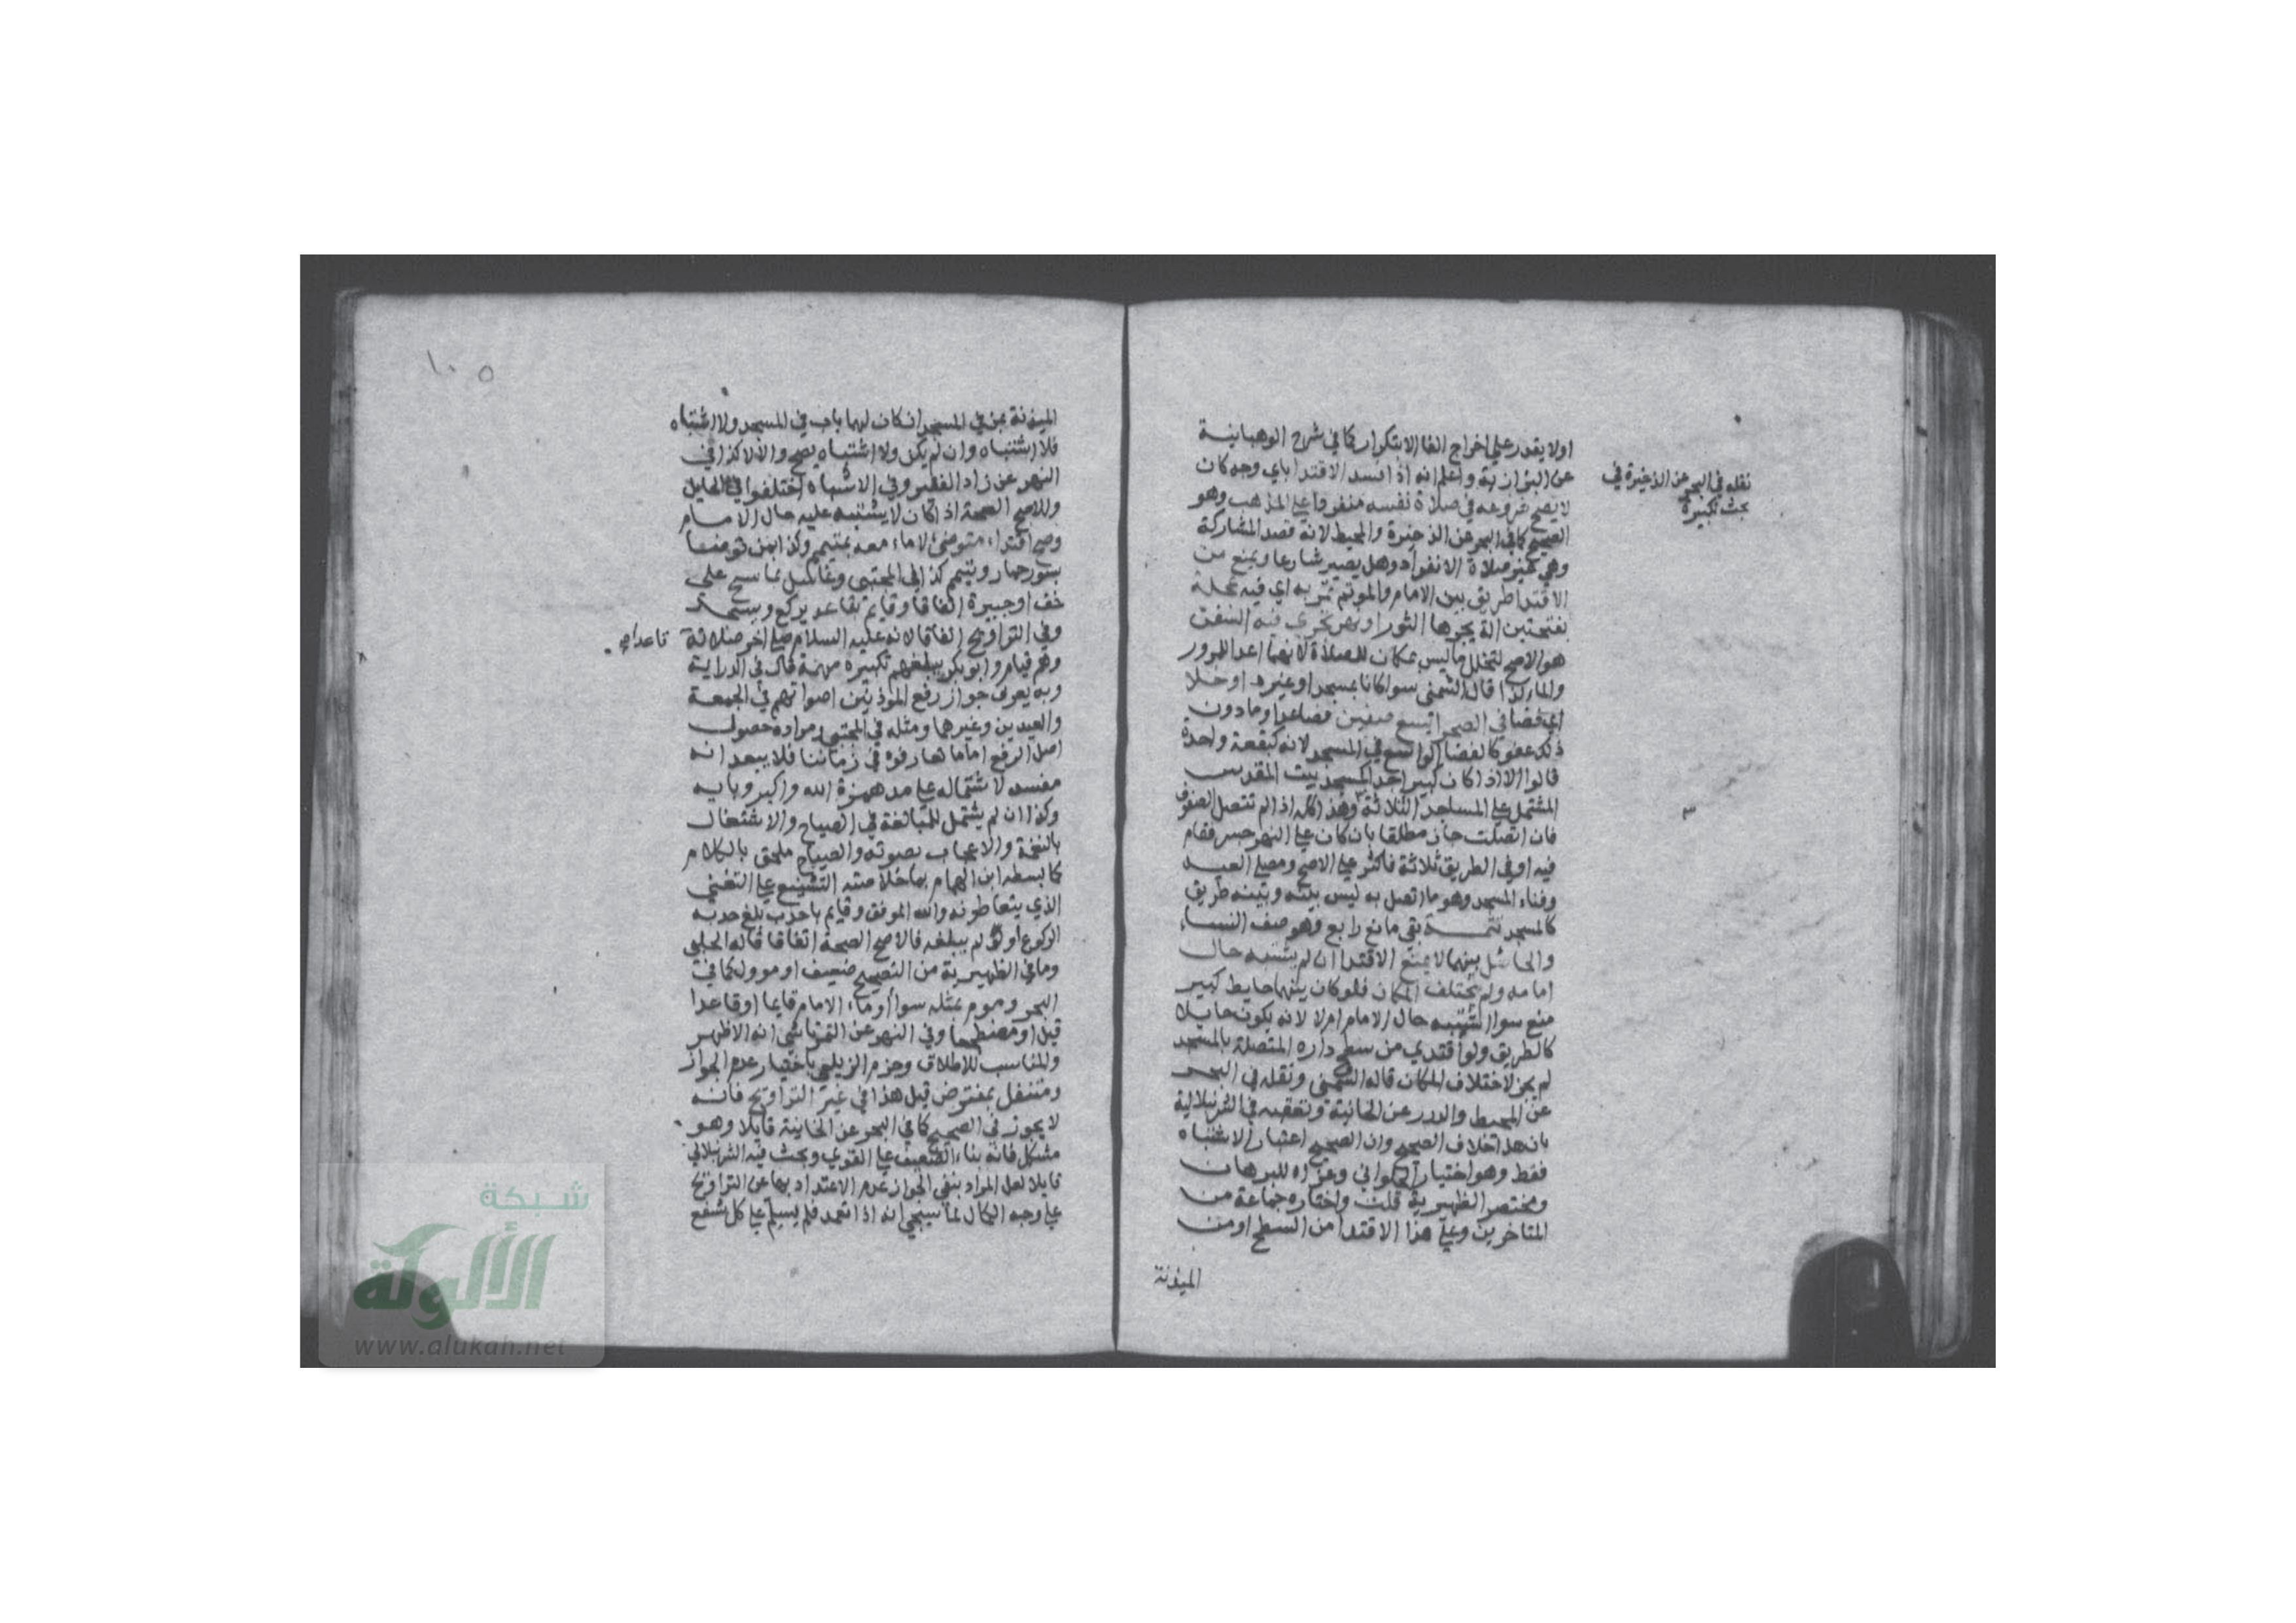 اولا يقدر علي اخراج الفا الا بتكرار كما في شرح الوهبانية
عن البزازية واعلم انه اذا فسد الاقتدا باي وجه كان
لا يصح شروعه في صلاة نفسه منفردا علي المذهب وهو
الصحيح كما في البحر عن الذخيرة والمحيط لانه قصد المشاركة
وهي غير صلاة الانفراد وهل يصير شارعا ويمنع من
الاقتدا طريق بين الامام والموتم تمر به اي فيه عجلة
بفتحتين الة يجرها الثور او نهر تجري فيه السفن
هو الاصح لتخلل ما ليس بمكان للصلاة لانهما اعدا للمرور
والمار كذا قال الشمني سوا كانا بمسجد او غيره او خلا
اي فضا في الصحرا يسع صفين فصاعدا وما دون
ذلك عفو كالفضا الواسع في المسجد لانه كبقعة واحدة
قالوا الا اذا كان كبيرا جدا كمسجد بيت المقدس
المشتمل علي المساجد الثلاثة وهذا كله اذا لم تتصل الصفوف
فان اتصلت جاز مطلقا بان كان علي النهر جسر فقام
فيه او في الطريق ثلاثة فاكثر علي الاصح ومصلي العيد
وفناء المسجد وهو ما اتصل به ليس بينه وبينه طريق
كالمسجد تتمة بقي مانع رابع وهو صف النساء
والحائل بينهما لا يمنع الاقتدا ان لم يشتبه حال
امامه ولم يختلف المكان فلو كان بينهما حايط كبير
منع سوا اشتبه حال الامام ام لا لانه يكون حايلا
كالطريق ولو اقتدي من سطح داره المتصلة بالمسجد
لم يجز لاختلاف المكان قاله الشمني ونقله في البحر
عن المحيط والدرر عن الخانية وتعقبه في الشرنبلالية
بان هذا خلاف الصحيح وان الصحيح اعتبار الاشتباه
فقط وهو اختيار الحلواني وعزاه للبرهان
ومختصر الظهيرية قلت واختاره جماعة من
المتاخرين وعلي هذا الاقتدا من السطح او من
الميذنة
نقله في البحر عن الذخيرة في
بحث تكبيرة
١٠٥
الميذنة بمن في المسجد ان كان لهما باب في المسجد ولا اشتباه
فلا اشتباه وان لم يكن ولا اشتباه يصح والا لا كذا في
النهر عن زاد الفقير وفي الاشباه اختلفوا في الحايل
والاصح الصحة اذا كان لا يشتبه عليه حال الامام
وصح اقتداء متوضئ لا ماء معه بمتيمم وكذا بمن توضا
بسور حمار وتيمم كذا في المجتبي وغاسل بماسح علي
خف او جبيرة اتفاقا وقايم بقاعد يركع ويسجد
وفي التراويح اتفاقا لانه عليه السلام صلي اخر صلاته
قاعدا صح
وهم قيام وابو بكر يبلغهم تكبيره مهمة قال في الدراية
وبه يعرف جواز رفع الموذنين اصواتهم في الجمعة
والعيدين وغيرهما ومثله في المجتبي ومراده حصول
اصل الرفع اما ما تعارفوه في زماننا فلا يبعد انه
مفسد لاشتماله علي مد همزة الله واكبر وبايه
وكذا ان لم يشتمل للمبالغة في الصياح والاشتغال
بالنغمة والاعجاب بصوته والصياح ملحق بالكلام
كما بسطه ابن الهمام بما خلاصته التشنيع علي التغني
الذي يتعاطونه والله الموفق وقايم باحدب بلغ حدبه
الركوع او لم يبلغه فالاصح الصحة اتفاقا قاله الحلبي
وما في الظهيرية من التصحيح ضعيف او موول كما في
البحر وموم بمثله سوا اوماء الامام قايما او قاعدا
قيل او مضطجعا وفي النهر عن التمرتاشي انه الاظهر
والمناسب للاطلاق وجزم الزيلعي باختيار عدم الجواز
ومتنفل بمفترض قيل هذا في غير التراويح فانه
لا يجوز في الصحيح كما في البحر عن الخانية قايلا وهو
مشكل فانه بناء الضعيف علي القوي وبحث فيه الشرنبلالي
قايلا لعل المراد بنفي الجواز عدم الاعتداد بها عن التراويح
علي وجه الكمال لما سيجي انه اذا تعمد فلم يسلم علي كل شفع
شبكة
الألوكة
www.alukah.net